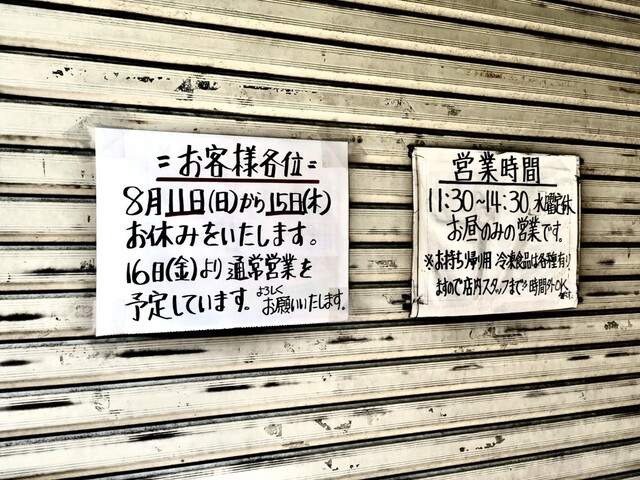 =お客様各位=
8月11日(日)から15日(木)
お休みをいたします。
16日(金)より通常営業を
予定しています。よろしくお願いいたします。
営業時間
11:30~14:30 水曜定休
お昼のみの営業です。
※お持ち帰り用 冷凍食品は各種有り
ますので店内スタッフまで 時間外OK
です。